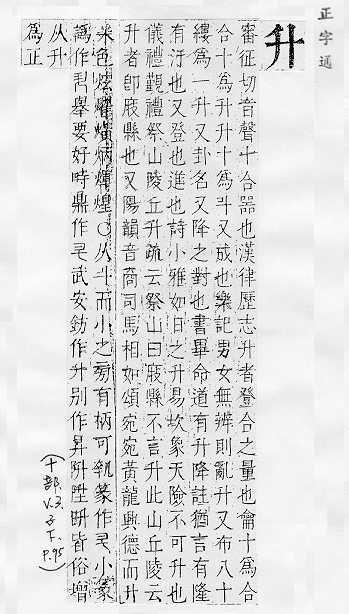 正字通
升
審征切音聲十合器也漢律歷志升者登合之量也龠十為合
合十為升升十為斗又成也樂記男女無辨則亂升又布八十
縷為一升又卦名又降之對也書畢命道有升降註猶言有隆
有汙也又登也進也詩小雅如日之升易坎彖天險不可升也
儀禮覲禮祭山陵丘升疏云祭山曰庪縣不言升此山丘陵云
升者卽庪縣也又陽韻音商司馬相如頌宛宛黃龍興德而升
采色炫耀熿炳煇煌○从斗而小之旁有柄可執篆作 小篆
譌作 舉要好時鼎作 武安鈁作升別作昇陞阩皆俗增
从升
為正
(十部
V.3.
3下.
P.95)